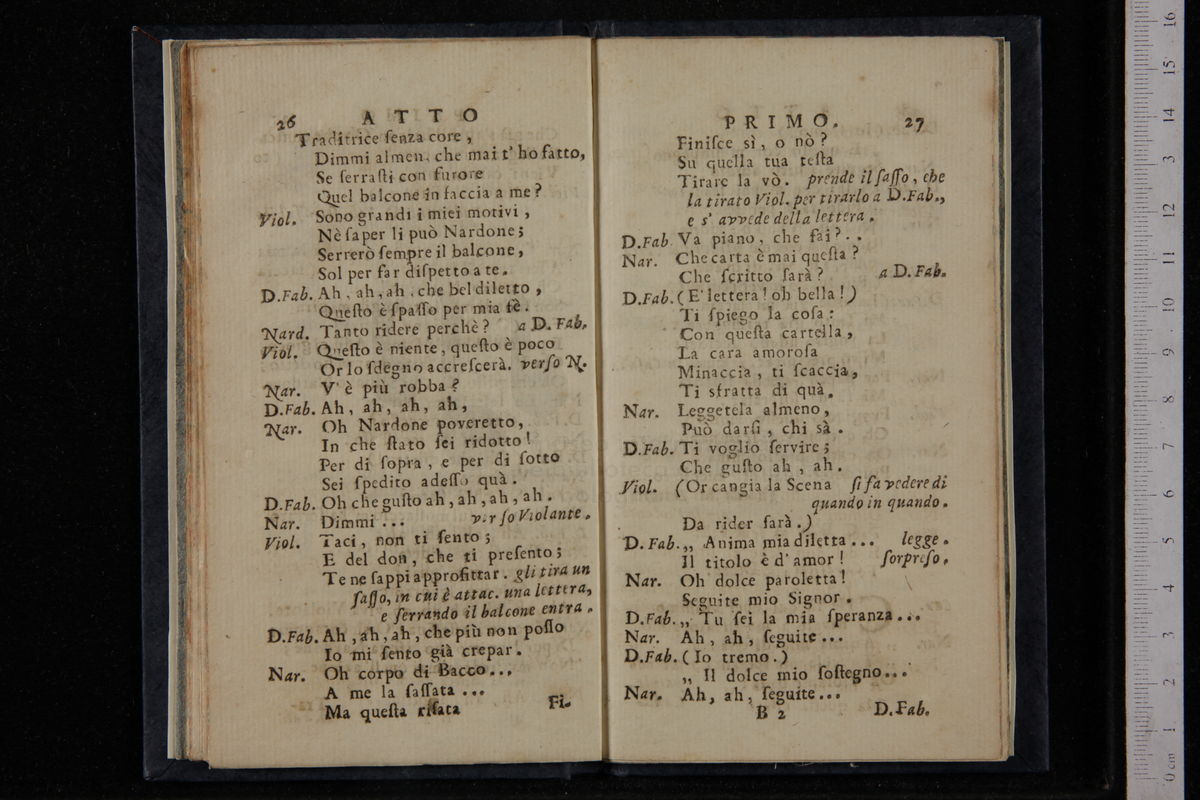 26 ATTO
Traditrice ſenza core,
Dimmi almen, che mai t' ho fatto,
Se ſerraſti con furore
Quel balcone in faccia a me?
Viol. Sono grandi i miei motivi,
Nè ſaper li può Nardone;
Serrerò ſempre il balcone,
Sol per far diſpetto a te.
D.Fab. Ah, ah, ah, che bel diletto,
Queſto è ſpaſſo per mia fè.
Nard. Tanto ridere perchè? a D. Fab.
Viol. Queſto è niente, queſto è poco
Or lo ſdegno accreſcerà. verſo N.
Nar. V' è più robba?
D.Fab. Ah, ah, ah, ah,
Nar. Oh Nardone poveretto,
In che ſtato ſei ridotto!
Per di ſopra, e per di ſotto
Sei ſpedito adeſſo quà.
D.Fab. Oh che guſto ah, ah, ah, ah.
Nar. Dimmi ... verſo Violante.
Viol. Taci, non ti ſento;
E del don, che ti preſento;
Te ne ſappi approfittar. gli tira un
ſaſſo, in cui è attac. una lettera,
e ſerrando il balcone entra.
D.Fab. Ah, ah, ah, che più non poſſo
Io mi ſento già crepar.
Nar. Oh corpo di Bacco...
A me la ſaſſata ...
Ma queſta riſata
Fi-
PRIMO. 27
Finiſce sì, o nò?
Su quella tua teſta
Tirare la vò. prende il ſaſſo, che
la tirato Viol. per tirarlo a D.Fab.,
e s' avvede della lettera.
D.Fab. Va piano, che fai?..
Nar. Che carta è mai queſta?
Che ſcritto ſarà? a D. Fab.
D.Fab. (E' lettera! oh bella!)
Ti ſpiego la coſa:
Con queſta cartella,
La cara amoroſa
Minaccia, ti ſcaccia,
Ti sfratta di quà.
Nar. Leggetela almeno,
Può darſi, chi sà.
D.Fab. Ti voglio ſervire;
Che guſto ah, ah.
Viol. (Or cangia la Scena ſi fa vedere di
quando in quando.
Da rider ſarà.)
D.Fab. „ Anima mia diletta ... legge.
Il titolo è d' amor! ſorpreſo.
Nar. Oh dolce paroletta!
Seguite mio Signor.
D.Fab. „ Tu ſei la mia ſperanza...
Nar. Ah, ah, ſeguite...
D.Fab. (Io tremo.)
„ Il dolce mio ſoſtegno...
Nar. Ah, ah, ſeguite...
B 2 D.Fab.
0 cm 1 2 3 4 5 6 7 8 9 10 11 12 13 14 15 16